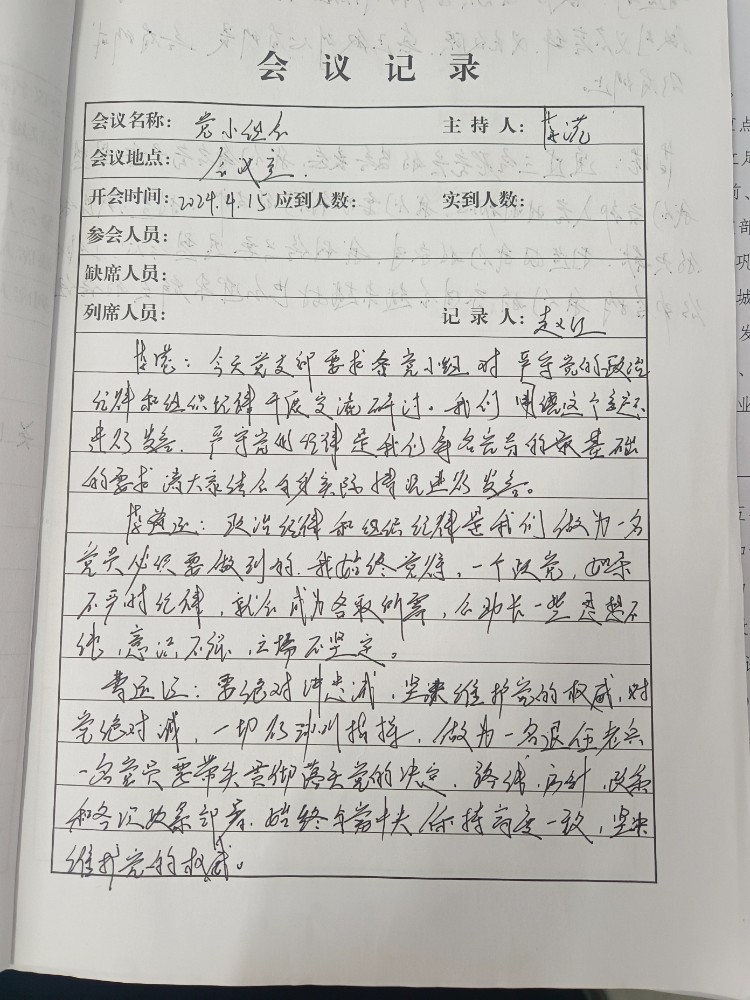 会议记录
会议名称: 党小组会 主持人: 李港
会议地点: 会议室.
开会时间: 2024.4.15 应到人数: 实到人数:
参会人员:
缺席人员:
列席人员: 记录人:
李港: 今天党支部要求各党小组对严守党的政治
纪律和组织纪律开展交流研讨。我们围绕这个主题
进行发言. 严守党的纪律是我们每名党员的最基础
的要求 请大家结合自身实际情况进行发言。
政治纪律和组织纪律是我们做为一名
党员必须要做到的. 我始终觉得, 一个政党, 如果
不严守纪律, 就会成为各取所需, 会助长一些思想不
纯, 意识不强, 立场不坚定。
要绝对忠诚, 坚决维护党的权威, 对
党绝对忠诚, 一切行动听指挥. 做为一名退伍老兵
一名党员要带头贯彻落实党的决定. 路线, 方针, 政策
和各项决策部署. 始终与党中央保持高度一致, 坚决
维护党的权威。